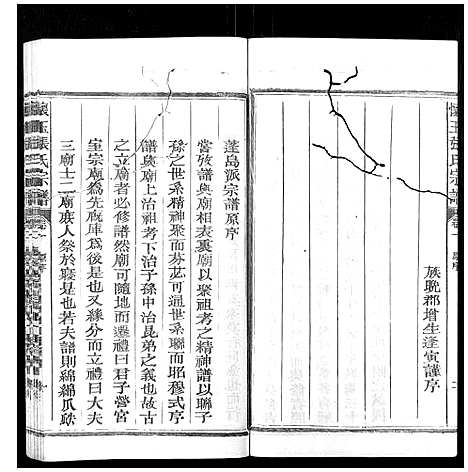 懷玉張氏宗譜
族晚郡增生逢寅謹序
蓬島派宗譜原序
嘗攷譜與廟相表裏廟以聚祖考之精神譜以聯子
孫之世系精神聚而芬苾可通世系聯而昭穆式序
譜與廟上治祖考下治子孫中治昆弟之義也故古
之立廟者必修譜然廟可隨地而遷禮曰君子營宮
室宗廟為先廐庫為後是也又緣分而立禮曰大夫
三廟士二廟庶人祭於寢是也若夫譜則綿綿瓜瓞
懷玉張氏宗譜